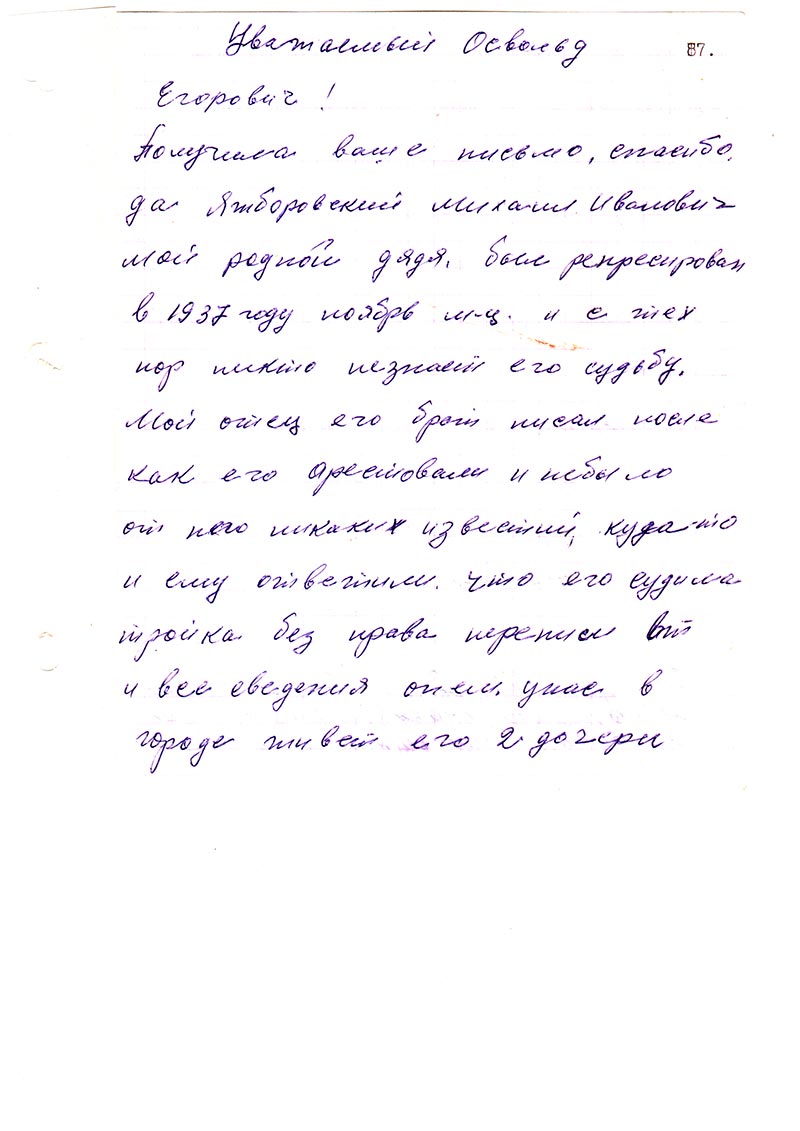 Уважаемый Освальд 87.
Егорович!
Получила ваше письмо, спасибо.
да Яжборовский Михаил Иванович
мой родной дядя. был репресирован
в 1937 году ноябрь м-ц. и с тех
пор никто незнает его судьбу.
Мой отец его брат писал после
как его арестовали и небыло
от него никаких известий, куда-то
и ему ответили. что его судила
тройка без права переписи вот
и все сведения онем. унас в
городе живет его 2 дочери